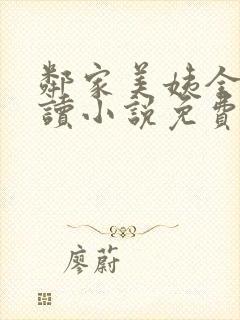 鄰家美姨全
讀小說免費
廖蔚